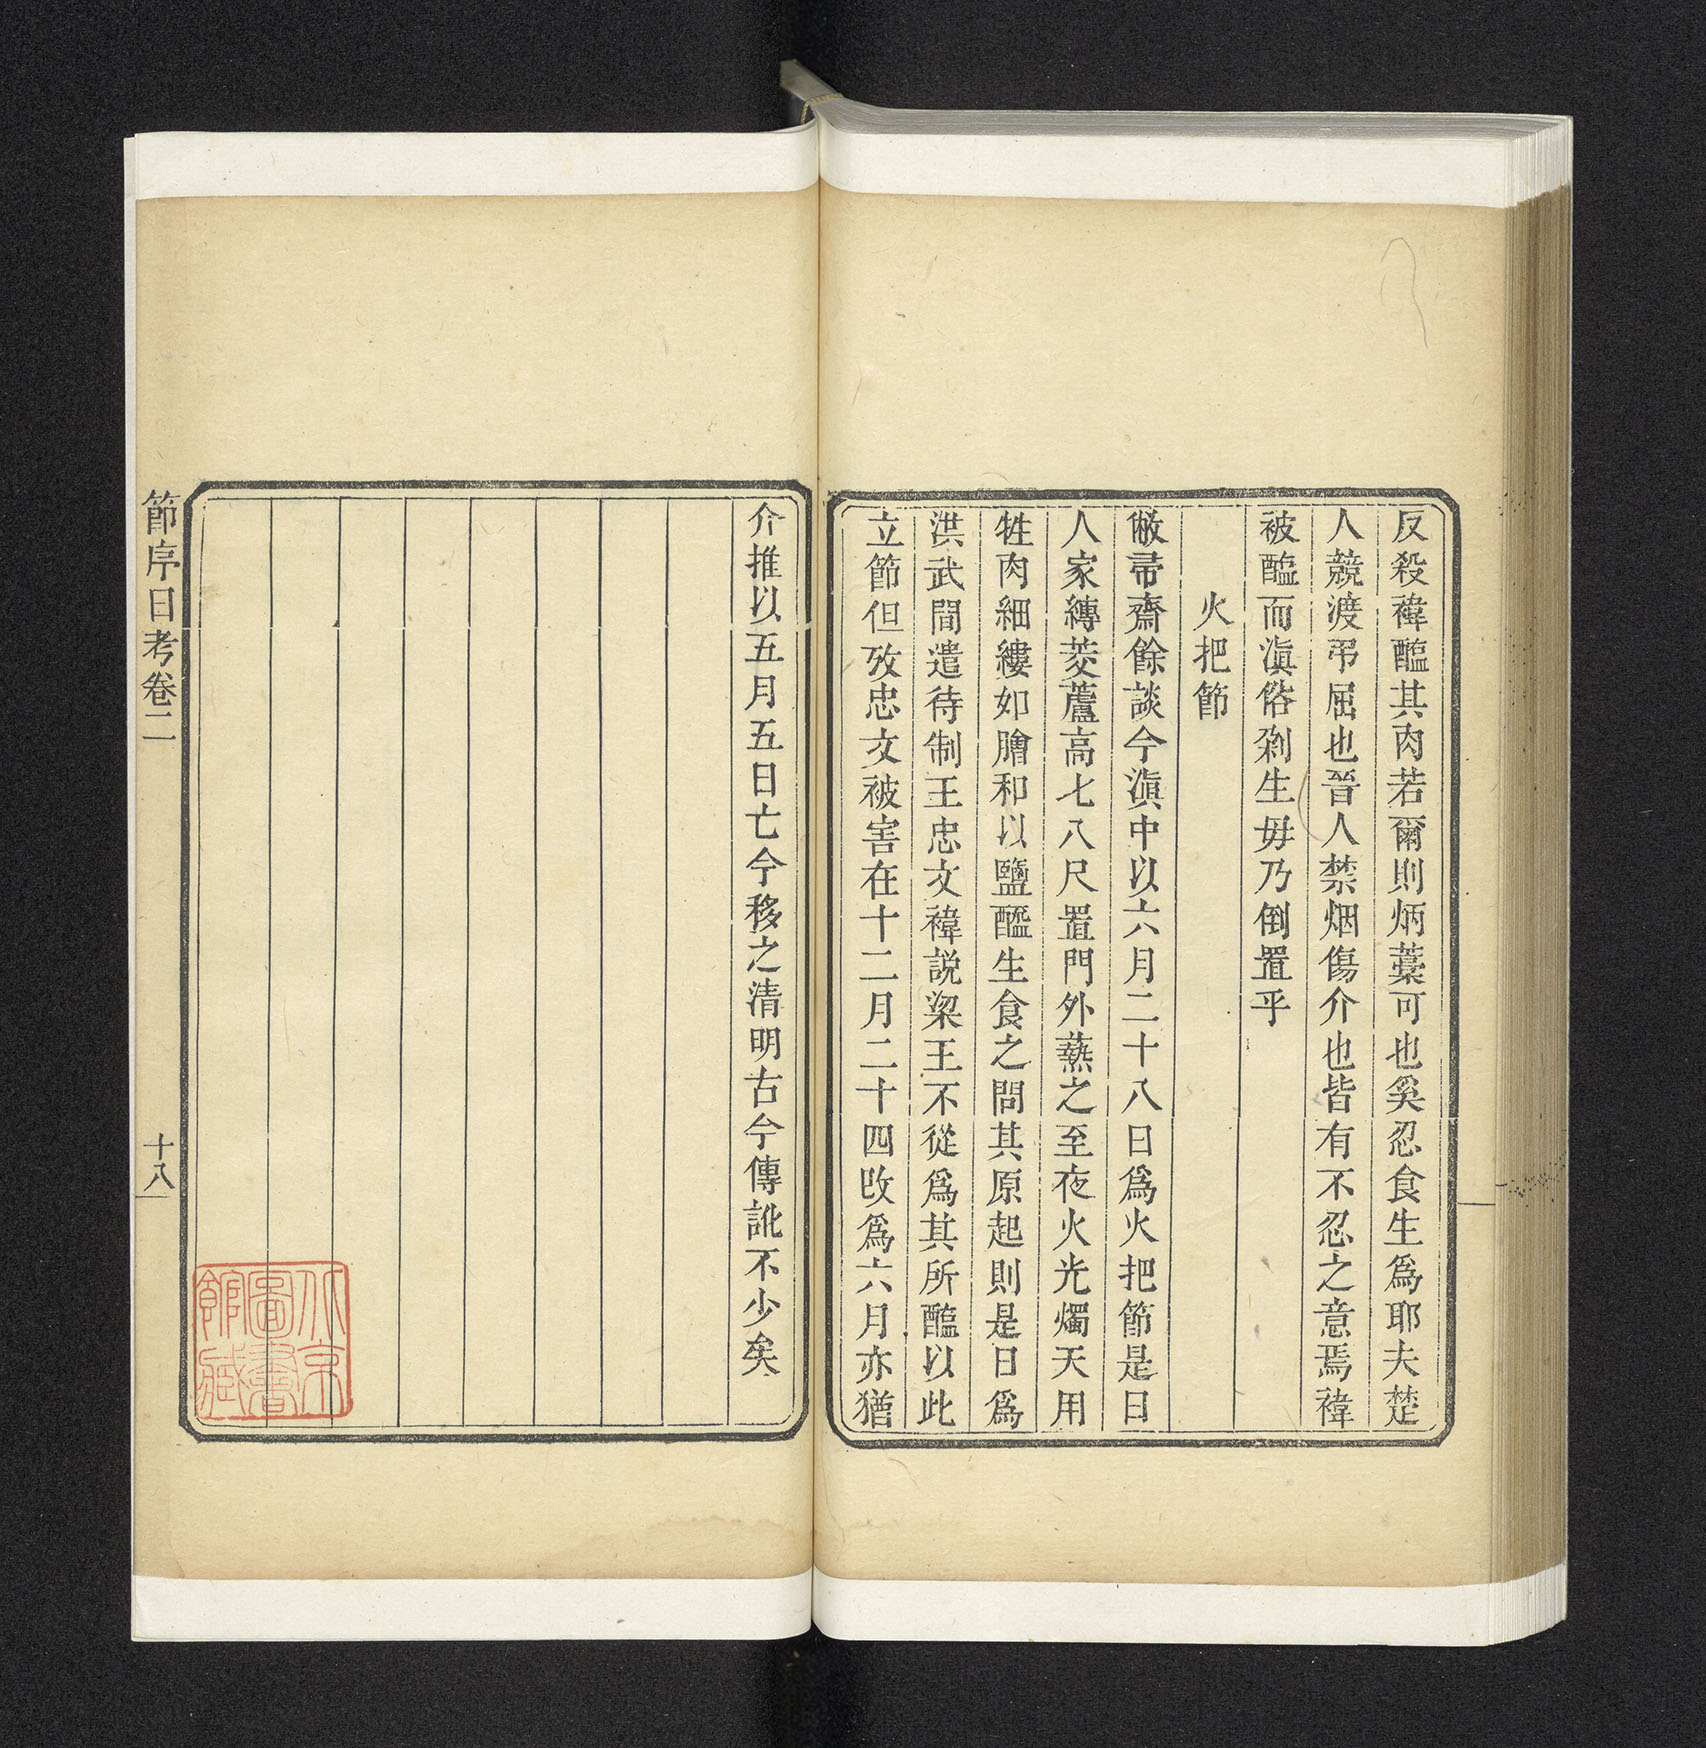 反殺褘醢其肉若爾則炳蒿可也奚忍食生爲耶夫楚
人競渡弔屈也晉人禁烟傷介也皆有不忍之意焉褘
被醢而滇俗剁生毋乃倒置乎
火把節
敝帚齋餘談今滇中以六月二十八日爲火把節是日
人家縳茭蘆高七八尺置門外爇之至夜火光燭天用
牲肉細縷如膾和以鹽醯生食之問其原起則是日爲
洪武間遣待制王忠文褘説梁王不從爲其所醢以此
立節但攷忠文被害在十二月二十四改爲六月亦猶
介推以五月五日亡今移之清明古今傳訛不少矣
節序日考卷二
十八
北京
圖書
館藏